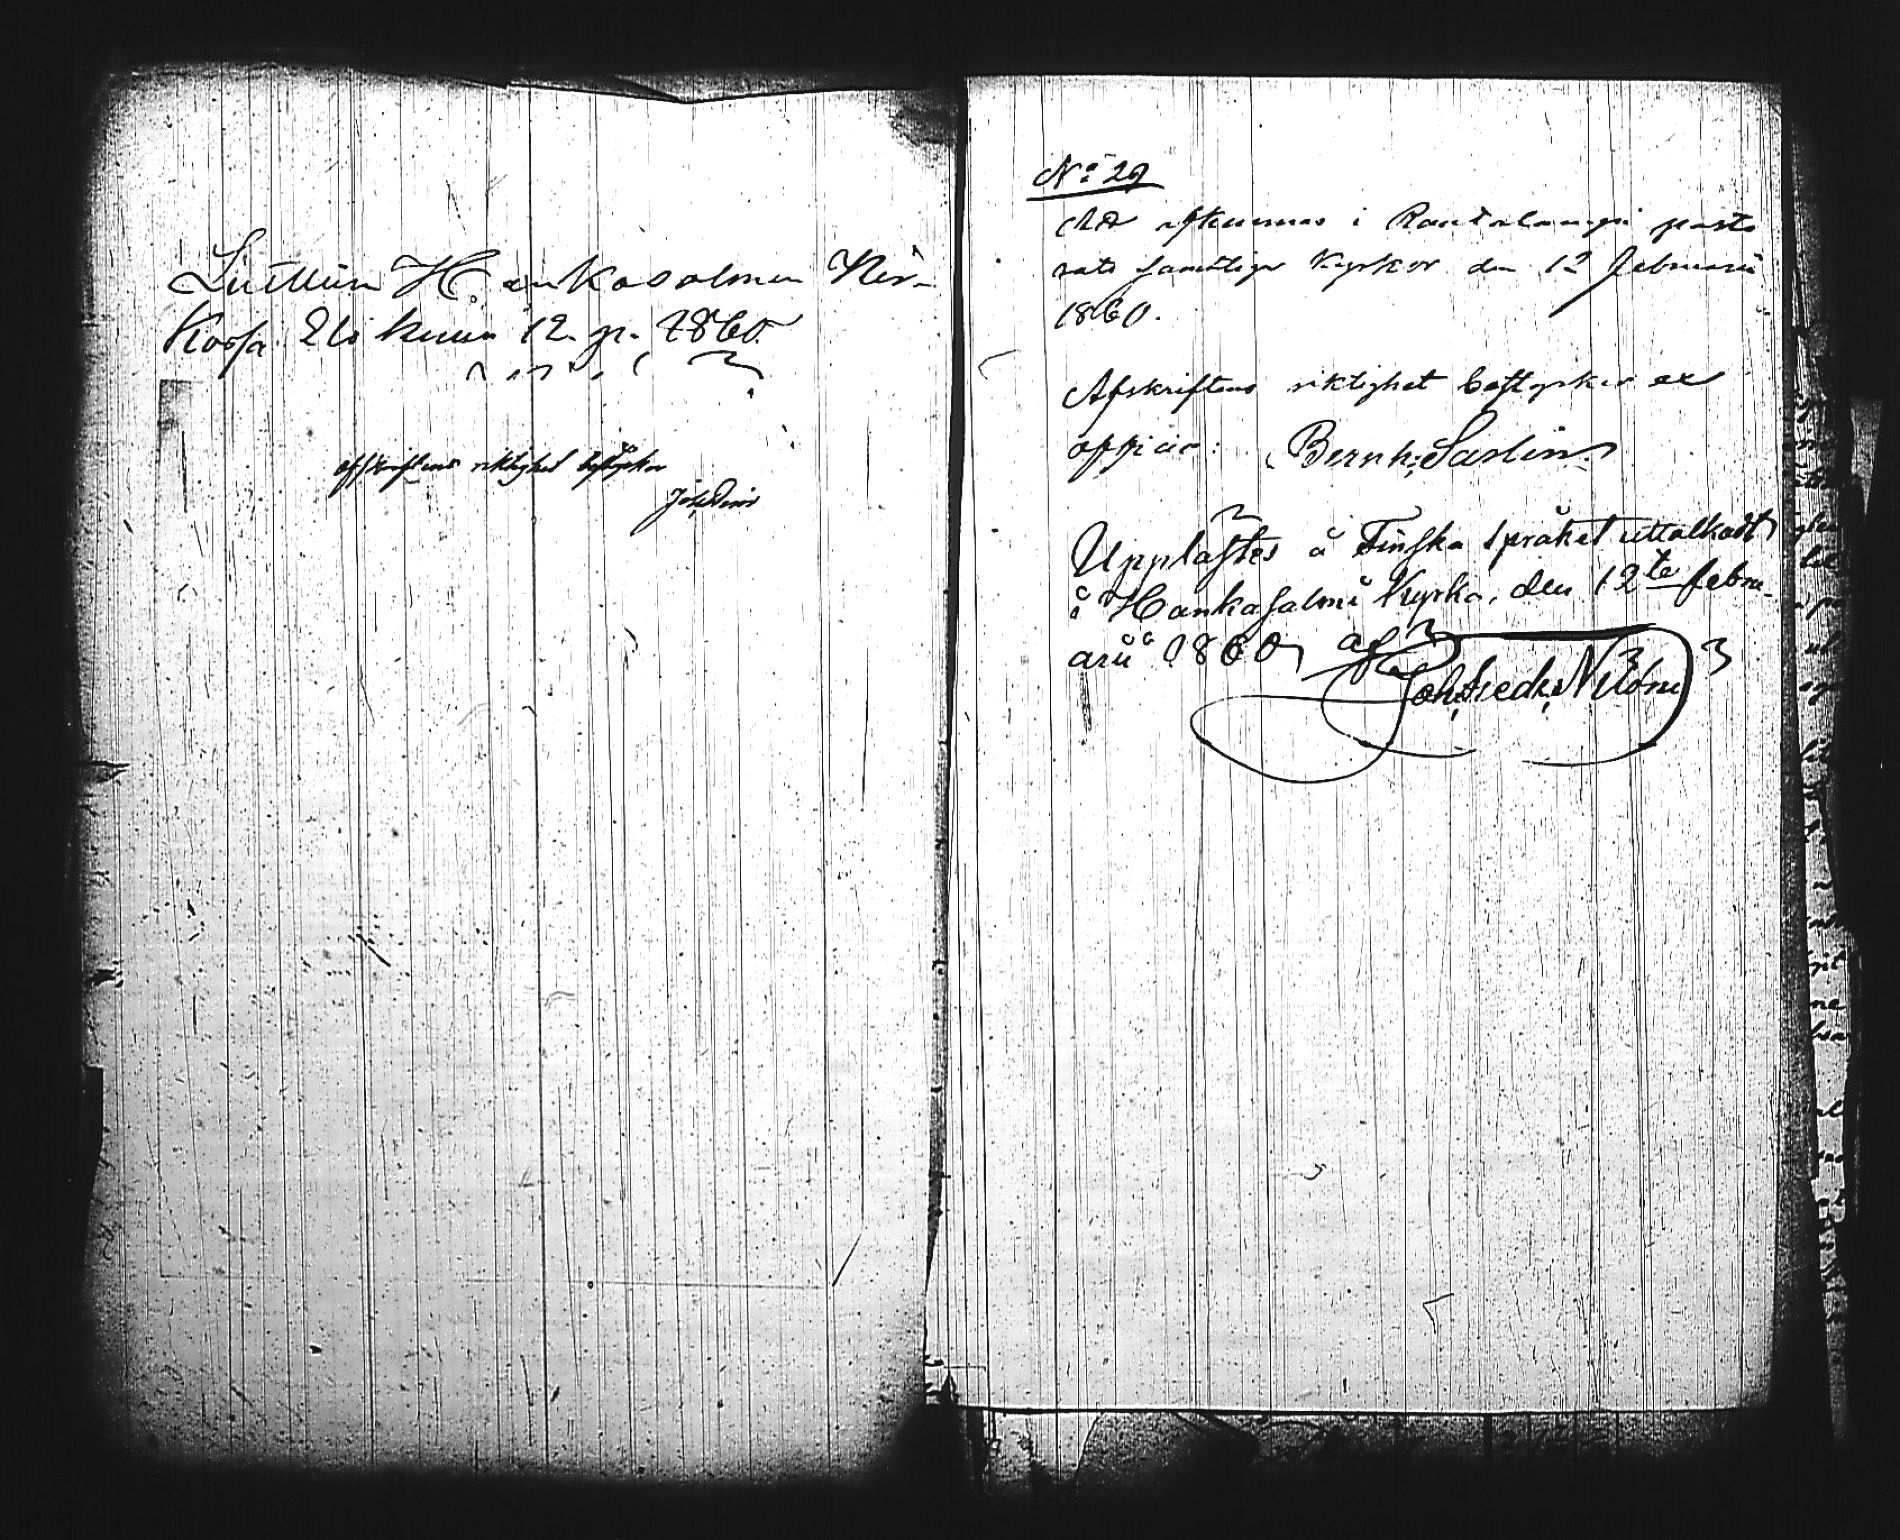 Luettiin Hankasalmen Kir-
kosa 2:si kuun 12. p. 1860.
Afskriftens riktighet bestyrker
No 29
Att afkunnas i Rautalampi pasto
rats samtliga kyrkor den 12 Februarii
1860.
Afskriftens riktighet bestyrker ex
officio: Bernh: Sarlin
Upplästes å Finska språket uttolkadt,
i Hankasalmi Kyrka, den 12te febru-
arii 1860, af
Joh: Fredr: